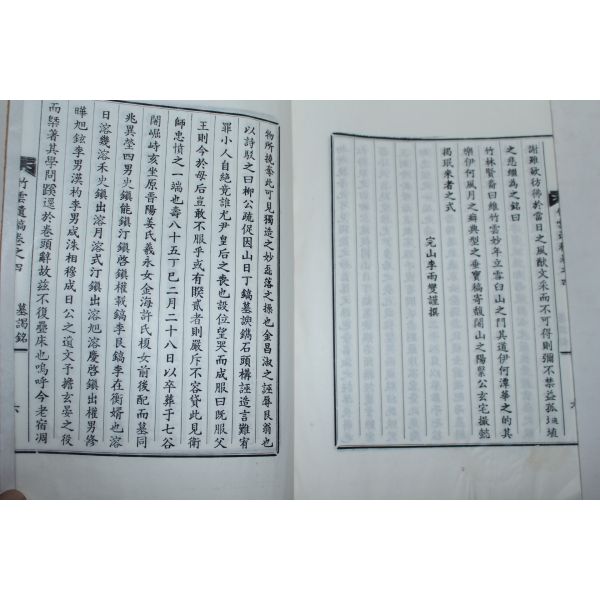 物所撓此可見獨造之妙落之操也金昌淑之誣辱艮翁也
以詩駁之曰柳公疏促因山日丁鎬墓諛鐫石頭構誣造言難宥
罪小人自絶竟誰尤尹皇后之喪也設位望哭而成服曰旣服父
王則今於母后豈敢不服乎或有睽貳者則嚴斥不容貸此見衛
師忠憤之一端也壽八十五丁巳二月二十八日以卒葬于七谷
閙崛峙亥坐原晋陽姜氏羲永女金海許氏榎女前後配而墓同
兆異塋四男史鎭能鎭汀鎭啓鎭權載鎬李艮鎬李在衡婿也溶
日溶幾溶禾史鎭出溶月溶式汀鎭出溶旭溶慶啓鎭出權男修
曄旭鉉李男漢杓李男成洙相穆成日公之遺文予擔玄晏之役
而槩著其學問蹊逕於卷頭辭故玆不復疊床也嗚呼今老宿凋
竹雲遺稿卷之四 墓謁銘 六
謝雖欲彷彿於當日之風猷文采而不可得則彌不禁益孤埴
之悲繼為之銘曰
竹林賢裔曰維竹雲妙年立雪臼山之門其道伊何潭華之的其
樂伊何風月之癖典型之垂寶稿寄馥闍山之陽緊公玄宅撮懿
揭珉來者之式
完山李雨燮謹撰